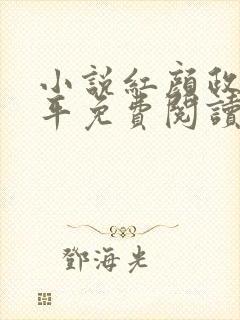 小說紅顏政
年免費閱讀
鄧海光